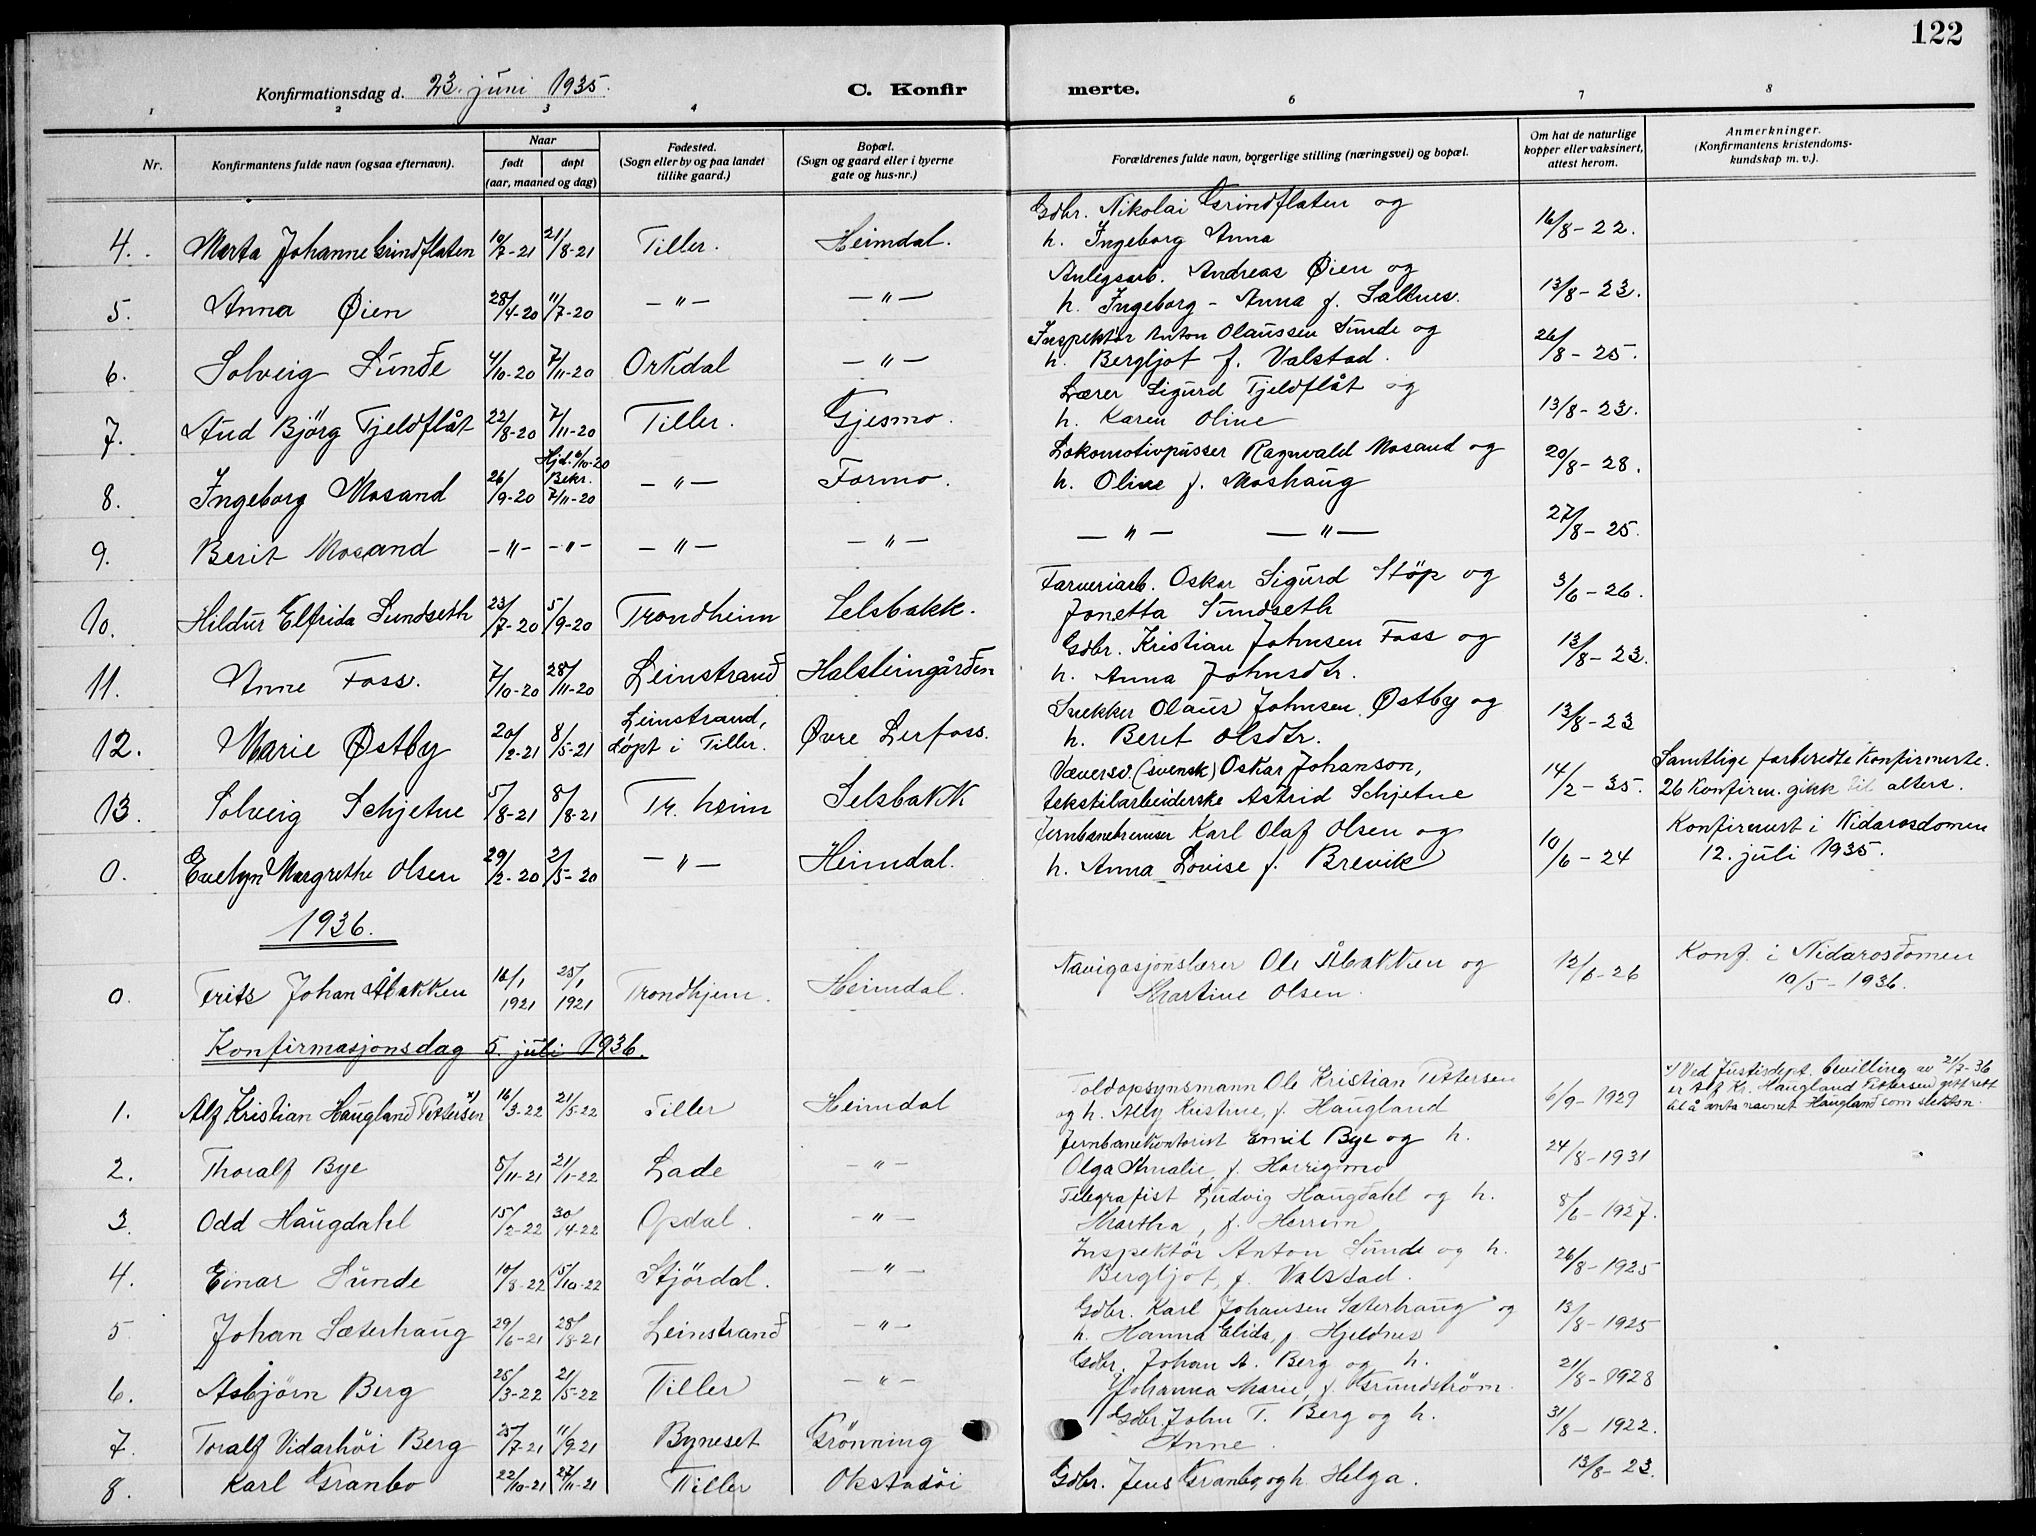 122
Konfirmationsdag d. 23. juni 1935. C. Konfirmerte.
1 2 3 4 6 7 8
Nr. Konfirmantens fulde navn (ogsaa efternavn). Naar født døpt (aar, maaned og dag) Fødested. (Sogn eller by og paa landet tillike gaard.) Bopæl. (Sogn og gaard eller i byerne gate og hus-nr.) Forældrenes fulde navn, borgerlige stilling (næringsvei) og bopæl. Om hat de naturlige kopper eller vaksinert, attest herom. Anmerkninger. (Konfirmantens kristendomskundskap m. v.).
4. Marta Johanne Grindflaten 10/7-21 21/8-21 Tiller. Heimdal. Gdbr. Nikolai Grindflaten og h. Ingeborg Anna 16/8-22.
5. Anna Øien 28/4-20 11/7-20 -"- -"- Anlegsarb. Andreas Øien og h. Ingeborg-Anna f. Saltnes. 13/8-23.
6. Solveig Sunde 4/10-20 7/11-20 Orkdal -"- Inspektør Anton Olaussen Sunde og h. Bergljot f. Valstad. 26/8-25.
7. Aud Bjørg Tjeldflåt 22/8-20 7/11-20 Tiller. Gjesmo. Lærer Sigurd Tjeldflåt og h. Karen Oline 13/8-23.
8. Ingeborg Mosand 26/9-20 Hjd. 6/10-20 Bekr. 7/11-20 -"- Formo. Lokomotivpusser Ragnvald Mosand og h. Oline f. Moshaug 20/8-28.
9. Berit Mosand -"- -"- -"- -"- -"- -"- 27/8-25.
10. Hildur Elfrida Sundseth 23/7-20 5/9-20 Trondheim Selsbakk. Farveriarb. Oskar Sigurd Støp og Jonetta Sundseth 3/6-26.
11. Anne Foss. 7/10-20 28/11-20 Leinstrand Halsteingården Gdbr. Kristian Johnsen Foss og h. Anna Johnsdtr. 13/8-23.
12. Marie Østby 20/2-21 8/5-21 Leinstrand, døpt i Tiller. Øvre Lerfoss. Snekker Olaus Johnsen Østby og h. Beret Olsdtr. 13/8-23
13. Solveig Schjetne 5/8-21 8/8-21 Tr. heim Selsbakk Væversv. (svensk) Oskar Johanson, tekstilarbeiderske Astrid Schjetne 14/2-35. Samtlige forberedte konfirmerte. 26 konfirm. gikk til alters.
0. Evelyn Margrethe Olsen 29/2-20 2/5-20 -"- Heimdal. Jernbanebremser Karl Olaf Olsen og h. Anna Lovise f. Brevik 10/6-24 Konfirmert i Nidarosdomen 12. juli 1935.
1936.
0. Frits Johan Åbakken 16/1 1921 25/1 1921 Trondhjem. Heimdal. Navigasjonslærer Ole Åbakken og Martine Olsen. 12/6-26 Konf. i Nidarosdomen 10/5-1936.
Konfirmasjonsdag 5. juli 1936.
1. Alf Kristian Haugland Pettersen x) 16/3-22 21/5-22 Tiller Heimdal Toldopsynsmann Ole Kristian Pettersen og h. Ally Kristine, f. Haugland 6/9-1929 x) Ved Justisdept. bevilling av 21/7-36 er Alf Kr. Haugland Pettersen gitt rett til å anta navnet Haugland som slektsn.
2. Thoralf Bye 5/11-21 21/1-22 Lade -"- Jernbanekontorist Emil Bye og h. Olga Amalie, f. Horrigmo 24/8-1931
3. Odd Haugdahl 15/2-22 30/4-22 Opdal. -"- Telegrafist Ludvig Haugdahl og h. Martha, f. Herrem 8/6-1927.
4. Einar Sunde 10/8-22 15/10-22 Stjördal. -"- Inspektör Anton Sunde og h. Bergljot, f. Valstad. 26/8-1925
5. Johan Sæterhaug 29/6-21 28/8-21 Leinstrand -"- Gdbr. Karl Johansen Sæterhaug og h. Hanna Elida, f Hjeldnes 13/8-1925
6. Asbjörn Berg 25/3-22 21/5-22 Tiller -"- Gdbr. Johan A. Berg og h. Johanna Marie, f. Grundström. 21/8-1928
7. Toralf Vidarhöi Berg 25/7-21 11/9-21 Byneset Grönning Gdbr. John T. Berg og h. Anne. 31/8-1922.
8. Karl Granbo 22/10-21 27/11-21 Tiller Okstadöi Gdbr. Jens Granbo, og h. Helga. 13/8-23.